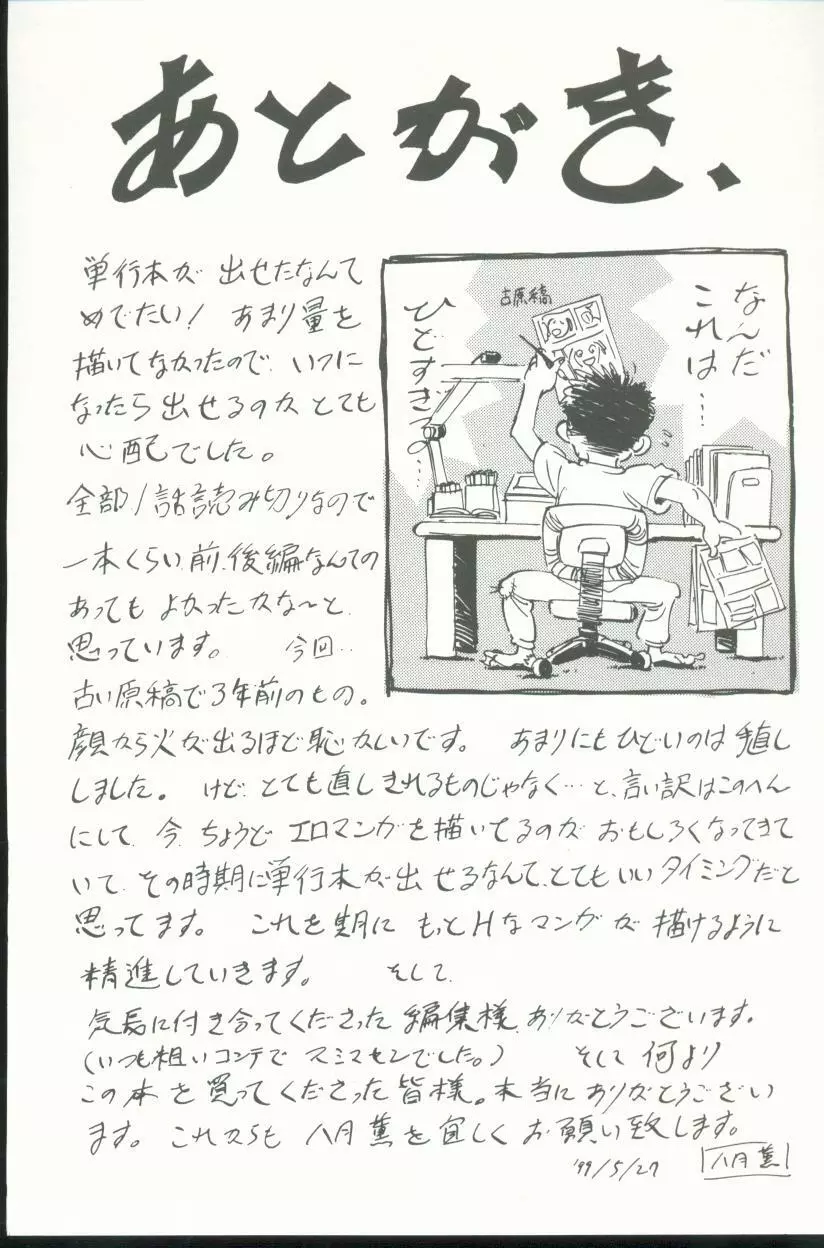 あとがき、
単行本が出せたなんて
めでたい! あまり量を
描いてなかったので、いつに
なったら出せるのかとても
心配でした。
全部1話読み切りなので
一本くらい前、後編なんての
あってもよかったかな〜と
思っています。 今回‥
古い原稿で3年前のもの。
顔から火が出るほど恥かしいです。 あまりにもひどいのは直し
しました。 けど、とても直しきれるものじゃなく…と、言い訳はこのへん
にして、今、ちょうどエロマンガを描いてるのがおもしろくなってきて
いて、その時期に単行本が出せるなんて、とてもいいタイミングだと
思ってます。 これを期にもっとHなマンガが描けるように
精進していきます。 そして、
気長に付き合ってくださった編集様、ありがとうございます。
(いつも粗いコンテでスミマセンでした。) そして何より
この本を買ってくださった皆様。本当にありがとうござい
ます。これからも八月薫を宜しくお願い致します。
'99/5/27 八月薫
なんだ
これは……
古原稿
ひどすぎっ…